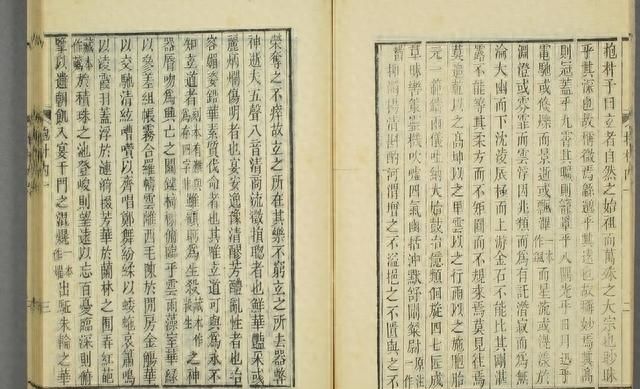 抱朴子曰玄者自然之始祖而萬殊之大宗也眇眛
乎其深也故稱微焉緜邈乎其遠也故稱妙焉其高
則冠蓋乎九霄其曠則籠罩乎八隅光乎日月迅乎
電馳或倏爍而景逝或飄一本作颻滭而星流或滉漾於
淵澄或雰霏而雲浮因兆類而為有託潛寂而為無
淪大幽而下沈凌辰極而上游金石不能比其剛湛
露不能等其柔方而不矩圓而不規來焉莫見往焉
莫追乾以之高坤以之卑雲以之行雨以之施胞胎
元一範鑄兩儀吐納大始鼓冶億類佪旋四七匠成
草昧轡策靈機吹噓四氣幽括沖默舒闡粲尉
抑濁揚清斟酌河渭增之不溢挹之不匱與之不
榮奪之不瘁故玄之所在其樂不窮玄之所去器弊
神逝夫五聲八音清商流徵損聰者也鮮華豔采或
麗炳爛傷明者也宴安逸豫清醪芳醴亂性者也冶
容媚姿鉛華素質伐命者也其唯玄道可與為永不
知玄道者雖顧眄為生殺藏本作殺生之神
器脣吻為興亡之關鍵綺榭俯臨乎雲雨藻室華綠
以參差組帳霧合羅幬雲離西毛陳於閒房金觴華
以交馳清絃嘈囋以齊唱鄭舞紛綵以蜲蛇哀簫鳴
以凌霞羽蓋浮於漣漪掇芳華於蘭林之囿弄紅葩
於積珠之池登峻則望遠以忘百憂臨深則俯
擥以遺朝飢入宴千門之混焜出驅朱輪之華
抱朴內一
三